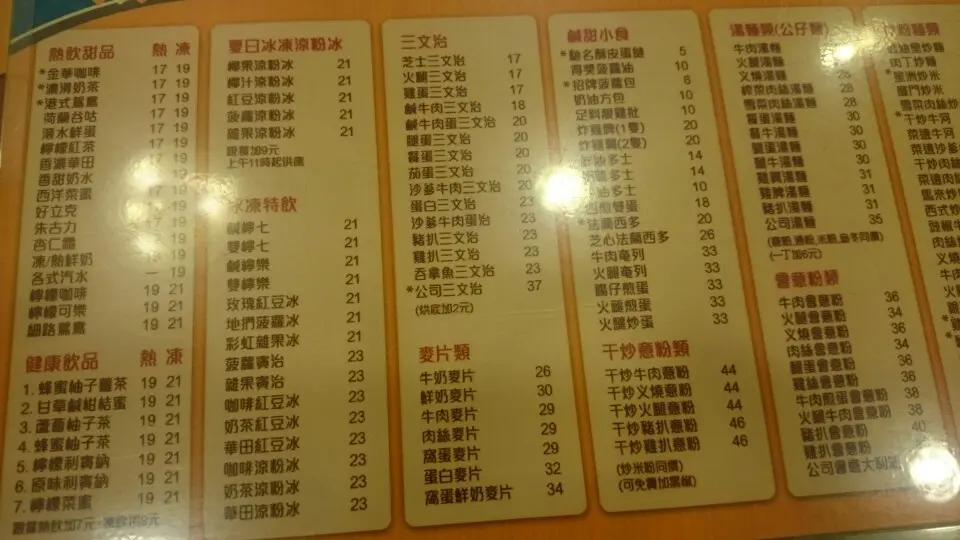 熱飲甜品 熱 凍
*金華咖啡 17 19
*濃滑奶茶 17 19
*港式鴛鴦 17 19
荷蘭谷咕 17 19
滾水鮮蛋 17 19
檸檬紅茶 17 19
香濃華田 17 19
香甜奶水 17 19
西洋菜蜜 17 19
好立克 19
朱古力 17 19
杏仁霜 17 19
凍/熱鮮奶 19
各式汽水 — 19
檸檬咖啡 19 21
檸檬可樂 19 21
細路鴛鴦 19 21
健康飲品 熱 凍
1. 蜂蜜柚子薑茶 19 21
2. 甘草鹹柑結蜜 19 21
3. 蘆薈柚子茶 19 21
4. 蜂蜜柚子茶 19 21
5. 檸檬利賓納 19 21
6. 原味利賓納 19 21
7. 檸檬菜蜜 19 21
跟餐熱飲加7元
夏日冰凍涼粉冰
椰果涼粉冰 21
椰汁涼粉冰 21
紅豆涼粉冰 21
菠蘿涼粉冰 21
雜果涼粉冰 21
跟餐加9元
上午11時起供應
冰凍特飲
鹹檸七 21
雙檸七 21
鹹檸樂 21
雙檸樂 21
玫瑰紅豆冰 21
地捫菠蘿冰 21
彩虹雜果冰 21
菠蘿賓治 23
雜果賓治 23
咖啡紅豆冰 23
奶茶紅豆冰 23
華田紅豆冰 23
咖啡涼粉冰 23
奶茶涼粉冰 23
華田涼粉冰 23
三文治
芝士三文治 17
火腿三文治 17
雞蛋三文治 17
鹹牛肉三文治 18
鹹牛肉蛋三文治 20
腿蛋三文治 20
餐蛋三文治 20
茄蛋三文治 20
沙爹牛肉三文治 20
蛋白三文治 23
沙爹牛肉蛋治 23
豬扒三文治 23
雞扒三文治 23
吞拿魚三文治 23
*公司三文治 37
(烘底加2元)
麥片類
牛奶麥片 26
鮮奶麥片 30
牛肉麥片 29
肉絲麥片 29
窩蛋麥片 29
蛋白麥片 32
窩蛋鮮奶麥片 34
鹹甜小食
*馳名酥皮蛋撻 5
得獎菠蘿油 10
*招牌菠蘿包 6
奶油方包 10
足料雞批 10
炸雞髀(1隻) 20
炸雞翼(2隻) 20
油多士 14
多士 14
油多士 10
煎雙蛋 18
*法蘭西多 20
芝心法蘭西多 26
牛肉奄列 33
火腿奄列 33
腸仔煎蛋 33
火腿煎蛋 33
火腿炒蛋 33
干炒意粉類
干炒牛肉意粉 44
干炒叉燒意粉 44
干炒火腿意粉 44
干炒豬扒意粉 46
干炒雞扒意粉 46
(炒米粉同價)
(可免費加黑椒)
湯麵類(公仔麵)
牛肉湯麵
火腿湯麵
叉燒湯麵 28
榨菜肉絲湯麵 28
雪菜肉絲湯麵 28
餐蛋湯麵 30
餐牛湯麵 30
腿蛋湯麵 30
腿牛湯麵 30
雞翼湯麵 31
雞髀湯麵 31
豬扒湯麵 31
公司湯麵 35
(意粉,通粉,米粉,烏冬同價)
(一丁加6元)
會意粉類
牛肉會意粉 36
火腿會意粉 34
叉燒會意粉 36
肉絲會意粉 34
腿蛋會意粉 36
雞絲會意粉 36
牛肉煎蛋會意粉 38
火腿牛肉會意粉 38
豬扒會意粉 40
雞扒會意粉
公司會意大利
炒粉麵類
豉油皇炒麵
肉丁炒麵
*星洲炒米
廈門炒米
雪菜肉絲炒
*干炒牛河
菜遠牛河
菜遠肉
干炒肉絲
菜遠肉
馬來炒
西式炒
豉椒牛
肉絲
干炒
叉燒